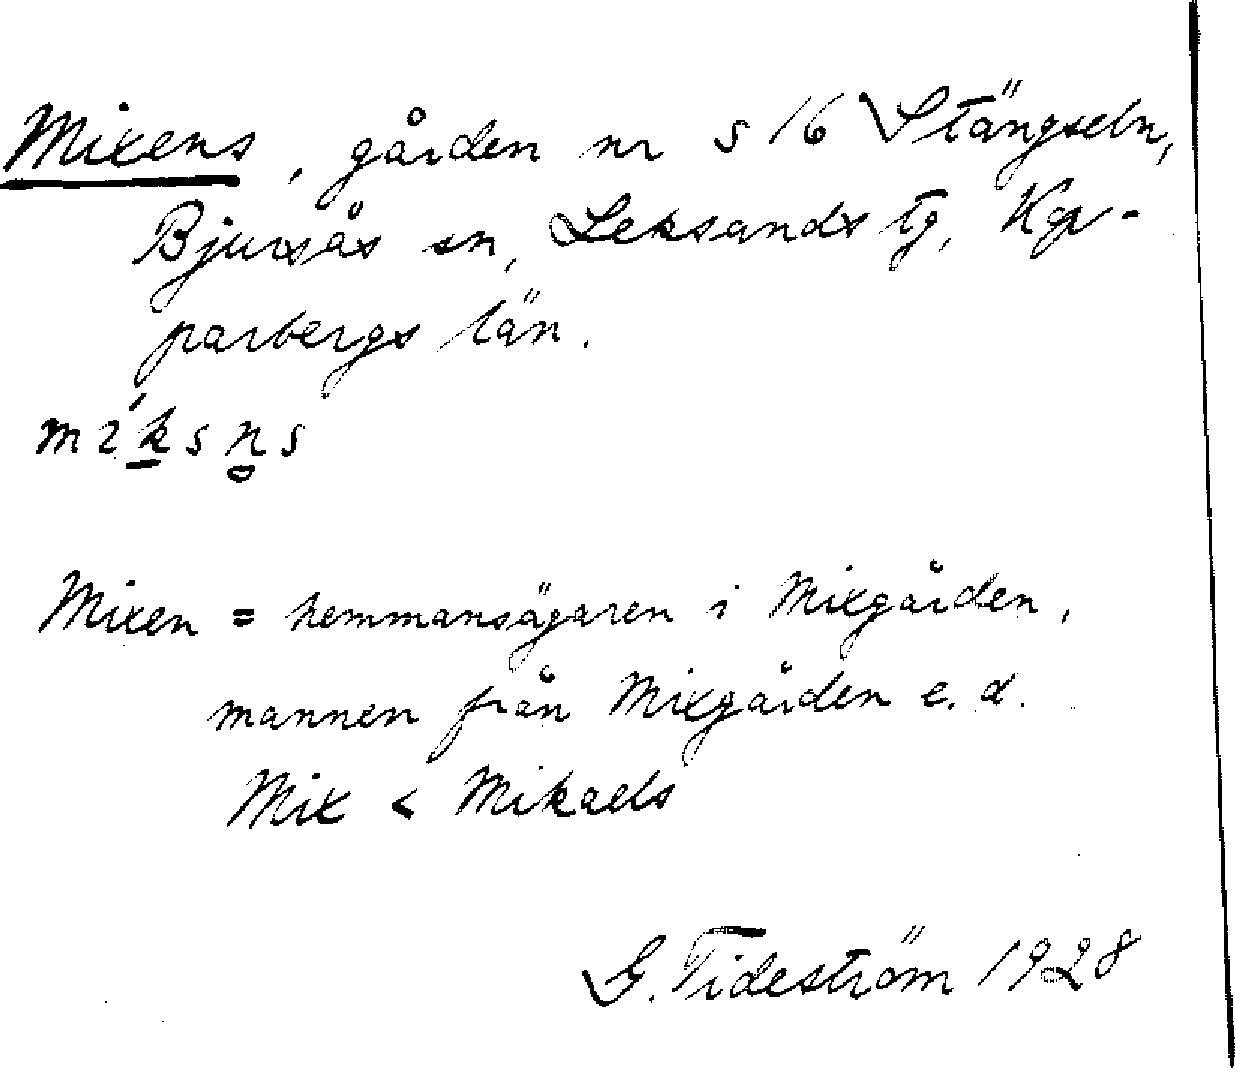 Mixens, gården nr s 16 Stängseln,
Bjursås sn, Leksands tg, Kop-
parbergs län.
míksn̥s
Mixen = hemmansägaren i Mixgården,
mannen från Mixgården e. d.
Mix < Mikaels
G. Tideström 1928